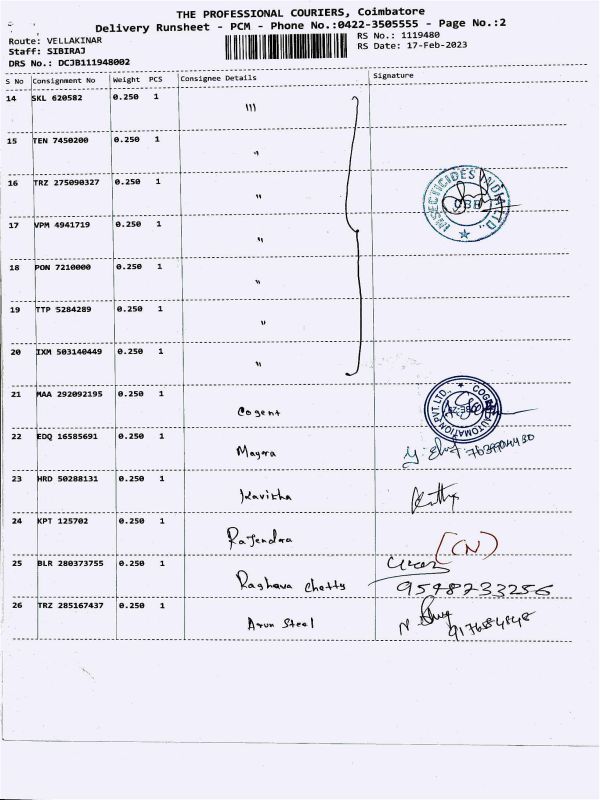 THE PROFESSIONAL COURIERS, Coimbatore
Delivery Runsheet - PCM - Phone No.:0422-3505555 - Page No.:2
Route: VELLAKINAR
RS No.: 1119480
Staff: SIBIRAJ
RS Date: 17-Feb-2023
DRS No.: DCJB111948002
S No Consignment No Weight PCS Consignee Details Signature
14 SKL 620582 0.250 1 " '
15 TEN 7450200 0.250 1 "
16 TRZ 275090327 0.250 1 " INSECTICIDES INDIA LTD.,
17 VPM 4941719 0.250 1 "
18 PON 7210000 0.250 1 "
19 TTP 5284289 0.250 1 "
20 IXM 503140449 0.250 1 "
21 MAA 292092195 0.250 1 Cogent COGENT AUTOMATION PVT. LTD.,
22 EDQ 16585691 0.250 1 Magora
23 HRD 50288131 0.250 1 Kavitha
24 KPT 125702 0.250 1 Rajendra (CN)
25 BLR 280373755 0.250 1 Raghava Chetty 9548233256
26 TRZ 285167437 0.250 1 Arun Steel